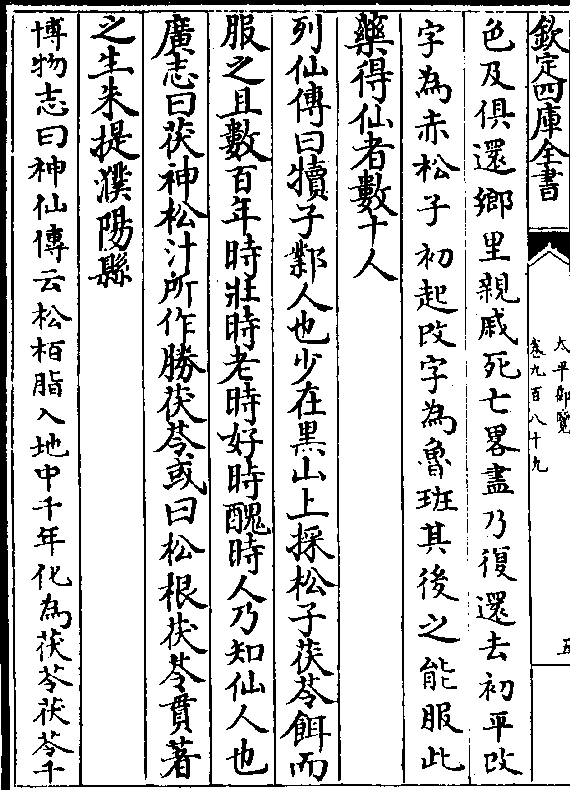 欽定四庫全書
太平御覽
卷九百八十九
五
色及俱還鄉里親戚死亡畧盡乃復還去初平改
字為赤松子初起改字為魯班其後之能服此
藥得仙者數十人
列仙傳曰犢子鄴人也少在黒山上採松子茯苓餌而
服之且數百年時壯時老時好時醜時人乃知仙人也
廣志曰茯神松汁所作勝茯苓或曰松根茯苓貫著
之生朱提濮陽縣
博物志曰神仙傳云松栢脂入地中千年化為茯苓茯苓千